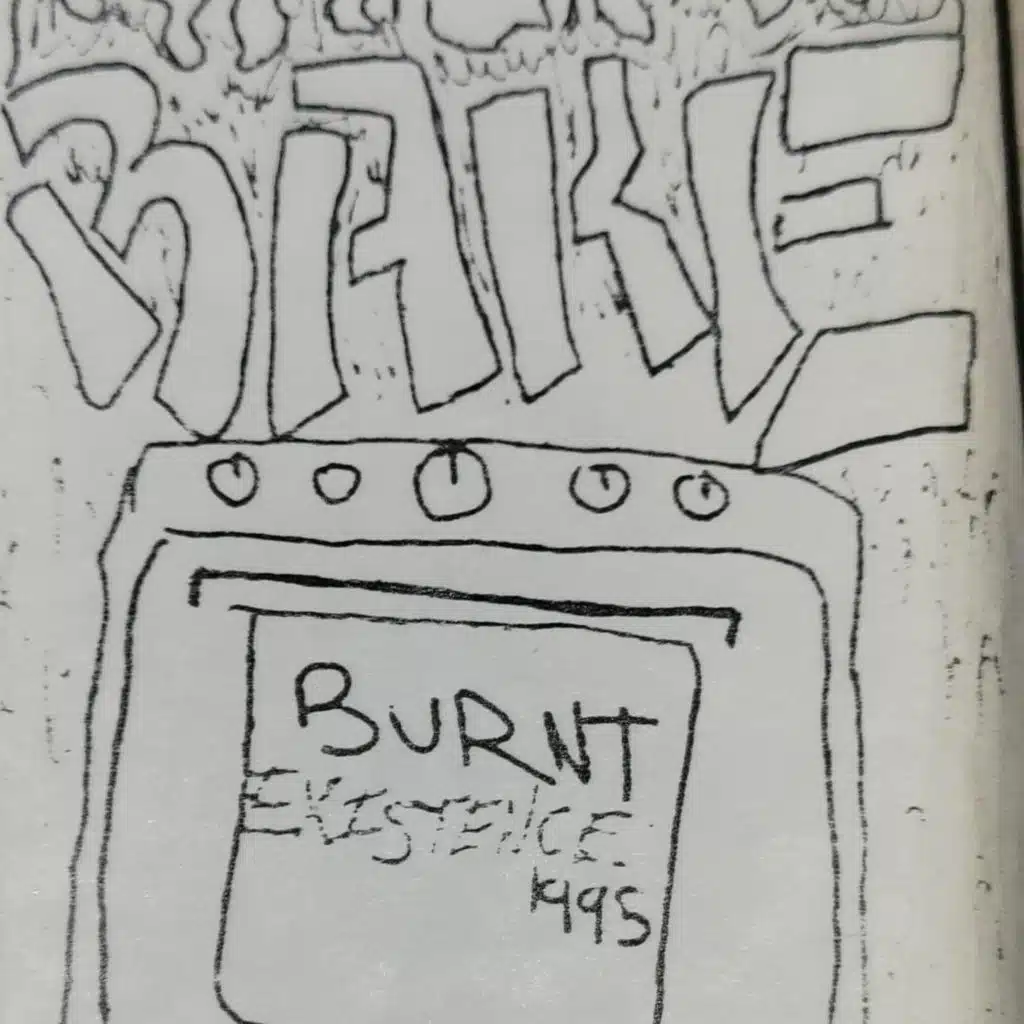 BAKE
BURNT
EXISTENCE
1995